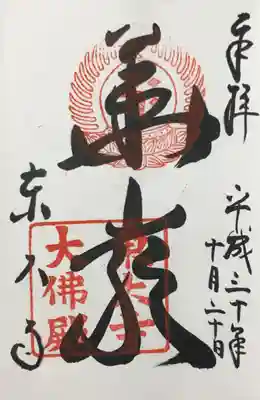 奉拝
平成三十年
十月二十日
華嚴
東大寺
大佛殿
東大寺